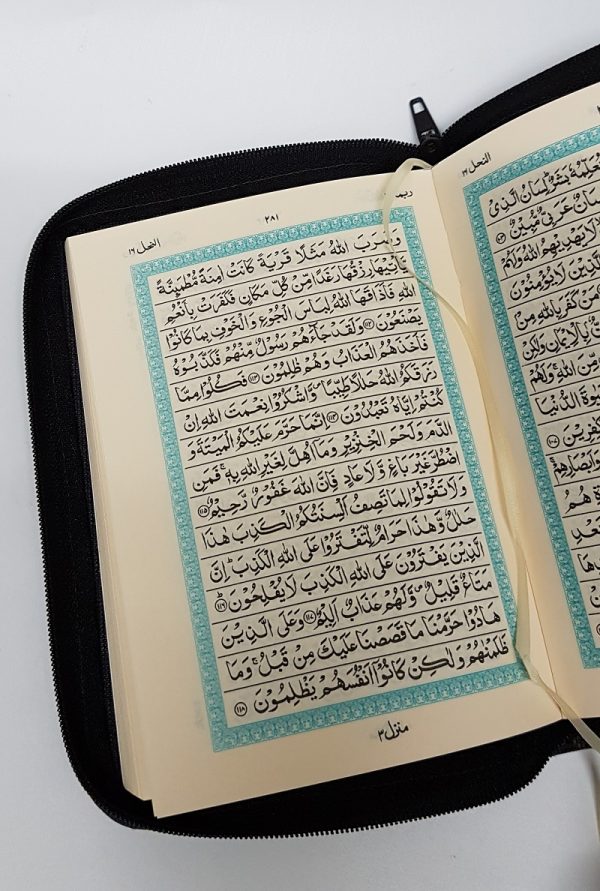 النحل ١٦
بَشَرٌ لِسَانُ الَّذِىْ
عَرَبِىٌّ مُّبِيْنٌ ١٠٣
لَا يَهْدِيْهِمُ اللّٰهُ وَلَهُمْ
الَّذِيْنَ لَا يُؤْمِنُوْنَ
مَنْ كَفَرَ بِاللّٰهِ مِنْۢ
بِالْاِيْمَانِ وَلٰكِنْ
مِّنَ اللّٰهِ وَلَهُمْ
الدُّنْيَا
وَاَبْصَارِهِمْ
هُمُ
بَعْدِ
٢٨١
النحل ١٦
وَضَرَبَ اللّٰهُ مَثَلًا قَرْيَةً كَانَتْ اٰمِنَةً مُّطْمَئِنَّةً
يَّاْتِيْهَا رِزْقُهَا رَغَدًا مِّنْ كُلِّ مَكَانٍ فَكَفَرَتْ بِاَنْعُمِ
اللّٰهِ فَاَذَاقَهَا اللّٰهُ لِبَاسَ الْجُوْعِ وَالْخَوْفِ بِمَا كَانُوْا
يَصْنَعُوْنَ ١١٢ وَلَقَدْ جَآءَهُمْ رَسُوْلٌ مِّنْهُمْ فَكَذَّبُوْهُ
فَاَخَذَهُمُ الْعَذَابُ وَهُمْ ظٰلِمُوْنَ ١١٣ فَكُلُوْا مِمَّا
رَزَقَكُمُ اللّٰهُ حَلٰلًا طَيِّبًا ۪ وَّاشْكُرُوْا نِعْمَتَ اللّٰهِ اِنْ
كُنْتُمْ اِيَّاهُ تَعْبُدُوْنَ ١١٤ اِنَّمَا حَرَّمَ عَلَيْكُمُ الْمَيْتَةَ وَ
الدَّمَ وَلَحْمَ الْخِنْزِيْرِ وَمَآ اُهِلَّ لِغَيْرِ اللّٰهِ بِهٖ ۚ فَمَنِ
اضْطُرَّ غَيْرَ بَاغٍ وَّلَا عَادٍ فَاِنَّ اللّٰهَ غَفُوْرٌ رَّحِيْمٌ ١١٥
وَلَا تَقُوْلُوْا لِمَا تَصِفُ اَلْسِنَتُكُمُ الْكَذِبَ هٰذَا
حَلٰلٌ وَّهٰذَا حَرَامٌ لِّتَفْتَرُوْا عَلَى اللّٰهِ الْكَذِبَ ؕ اِنَّ
الَّذِيْنَ يَفْتَرُوْنَ عَلَى اللّٰهِ الْكَذِبَ لَا يُفْلِحُوْنَ ؕ ١١٦
مَتَاعٌ قَلِيْلٌ ۪ وَّلَهُمْ عَذَابٌ اَلِيْمٌ ١١٧ وَعَلَى الَّذِيْنَ
هَادُوْا حَرَّمْنَا مَا قَصَصْنَا عَلَيْكَ مِنْ قَبْلُ ۚ وَمَا
ظَلَمْنٰهُمْ وَلٰكِنْ كَانُوْۤا اَنْفُسَهُمْ يَظْلِمُوْنَ ١١٨
منزل ٣